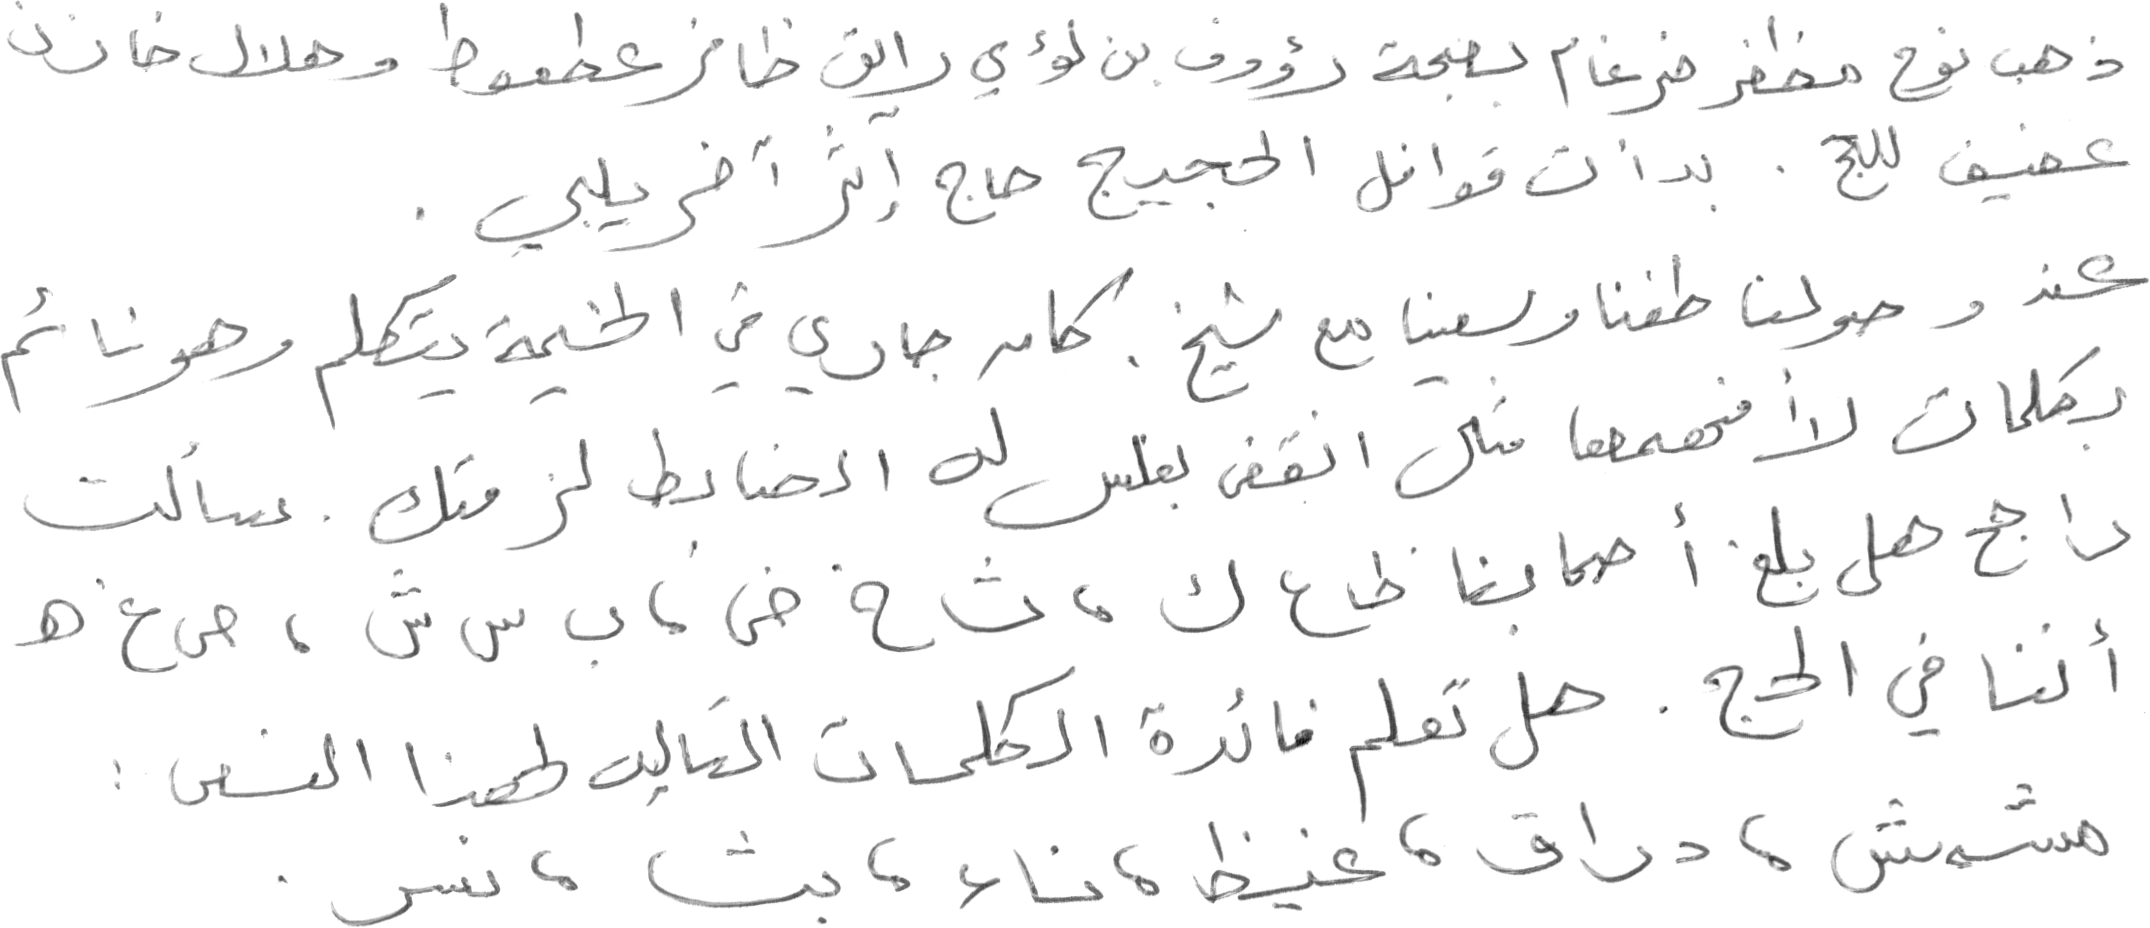 ذهب نوح مظفر ضرغام بصحبة رؤوف بن لؤي رائق ظافر عطعوط وهلال خازن
عفيف للحج . بدأت قوافل الحجيج حاج إثر آخر يلبي .
عند وصولنا طفنا وسعينا مع شيخ . كان جاري في الخيمة يتكلم وهو نائم
بكلمات لا أفهمها مثل انقض بغلس له الضابط لزمتك . سألت
راجح هل بلغ أصحابنا ظ ع ك ، ث خ ض ، ب س ش ، ص غ ه
أننا في الحج . هل تعلم فائدة الكلمات التالية لهذا النص :
مشمش ، دراق ، غيظ ، ناء ، بث ، نسر .